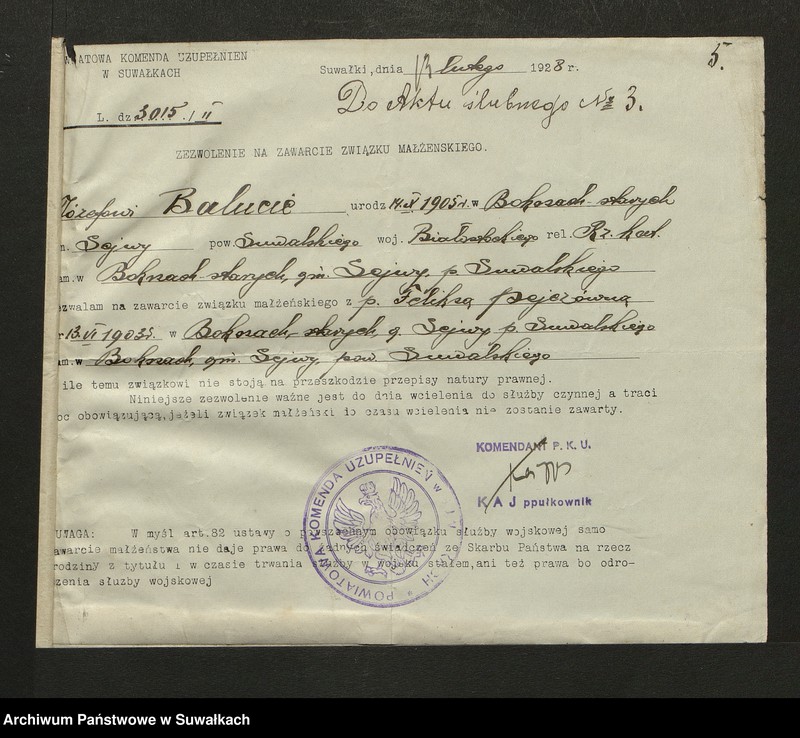 5.
WIATOWA KOMENDA UZUPEŁNIEN
W SUWAŁKACH
Suwałki, dnia lutego 1928 r.
Do Aktu ślubnego № 3.
L. dz 3015./II
ZEZWOLENIE NA ZAWARCIE ZWIĄZKU MAŁŻENSKIEGO.
Józefowi Balucie urodz 1905r. w Bokszach-starych
m. Sejwy pow. Suwalskiego woj. Białostockiego rel. Rz. kat.
am. w Bokszach-starych, gm. Sejwy, p. Suwalskiego
ezwalam na zawarcie związku małżeńskiego z p. Feliksą
r 13.VI 1903r. w Bokszach-starych, g. Sejwy p. Suwalskiego
am. w Bokszach, gm. Sejwy, pow. Suwalskiego
ile temu związkowi nie stoją na przeszkodzie przepisy natury prawnej.
Niniejsze zezwolenie ważne jest do dnia wcielenia do służby czynnej a traci
oc obowiązującą, jeżeli związek małżeński do czasu wcielenia nie zostanie zawarty.
KOMENDANT P. K. U.
K A J ppułkownik
POWIATOWA KOMENDA UZUPEŁNIEŃ W
UWAGA: W myśl art.82 ustawy o powszechnym obowiązku służby wojskowej samo
awarcie małżeństwa nie daje prawa do żadnych świadczeń ze Skarbu Państwa na rzecz
rodziny z tytułu i w czasie trwania służby w wojsku stałem, ani też prawa bo odro-
zenia służby wojskowej
Archiwum Państwowe w Suwałkach